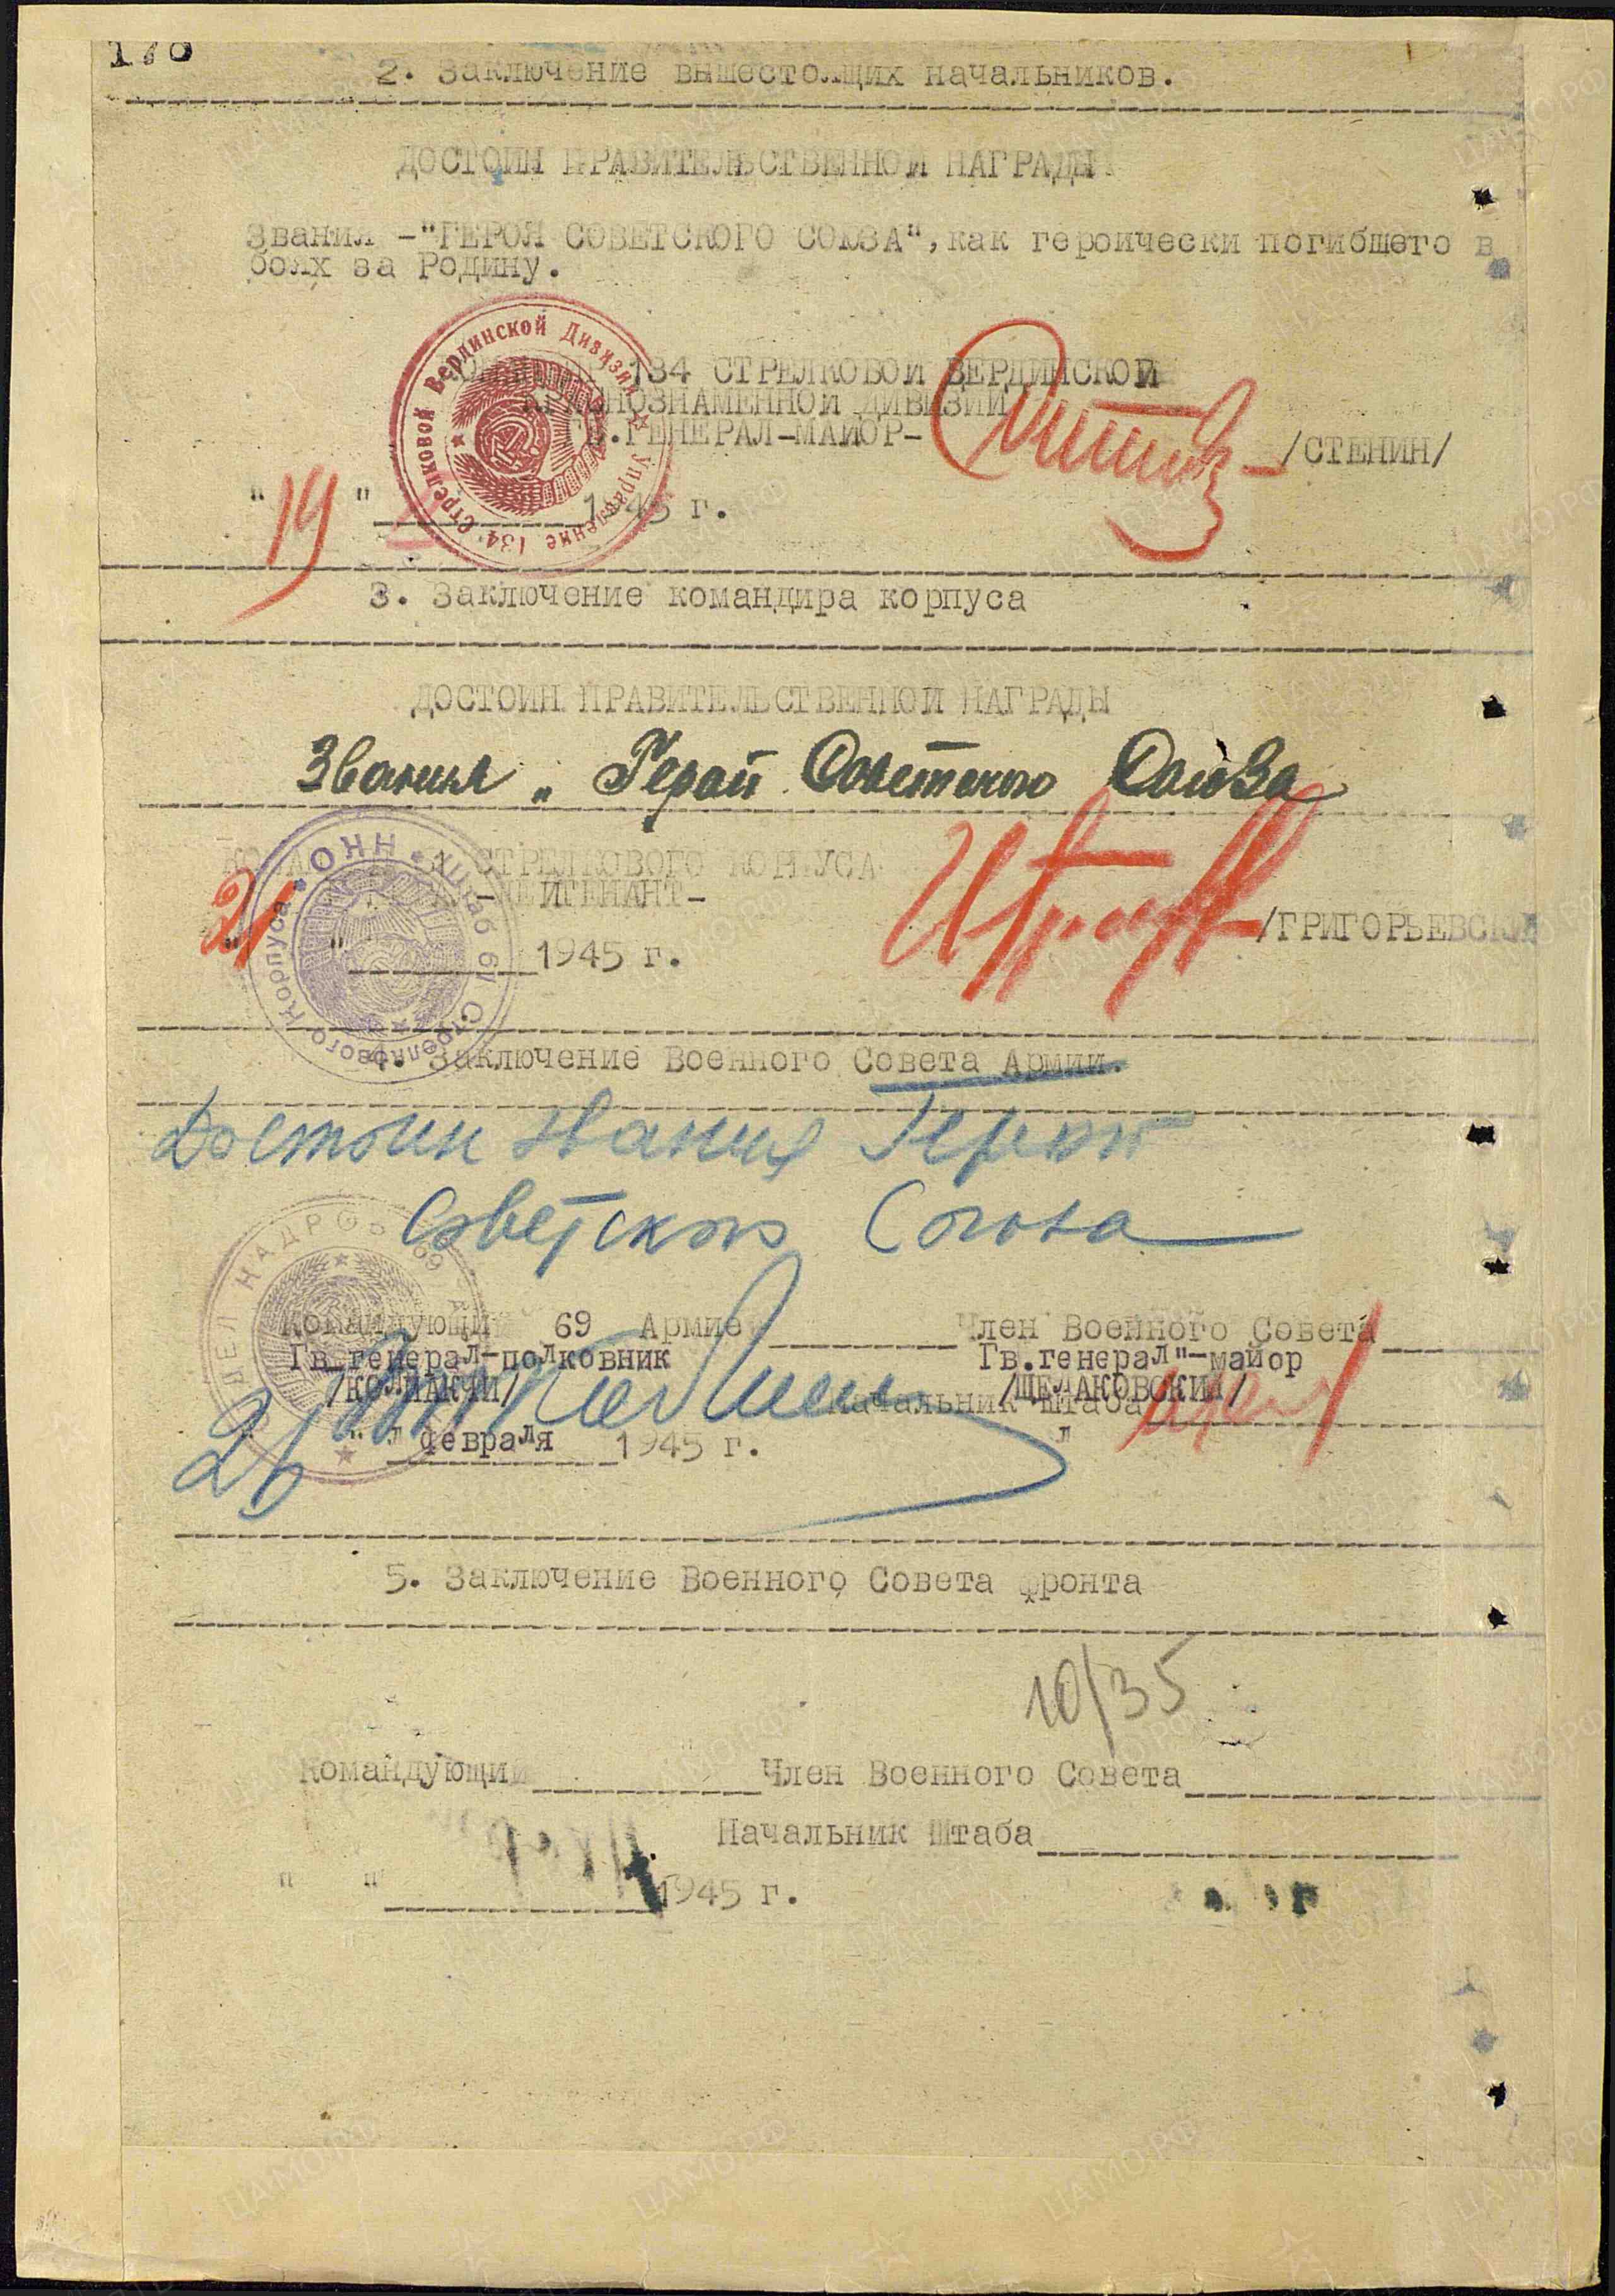 2. Заключение вышестоящих начальников.
ДОСТОИН ПРАВИТЕЛЬСТВЕННОЙ НАГРАДЫ
Звания -"ГЕРОЯ СОВЕТСКОГО СОЮЗА", как героически погибшего в
боях за Родину.
134 СТРЕЛКОВОЙ ВЕРДИНСКОЙ
КРАСНОЗНАМЕННОЙ ДИВИЗИИ
ГВ.ГЕНЕРАЛ-МАЙОР- /СТЕНИН/
"19" 1945 г.
Управление 134 Стрелковой Вердинской Дивизии
3. Заключение командира корпуса
ДОСТОИН ПРАВИТЕЛЬСТВЕННОЙ НАГРАДЫ
Звания „ Герой Советского Союза
61 СТРЕЛКОВОГО КОРПУСА
-ЛЕЙТЕНАНТ- /ГРИГОРЬЕВСКИ
21 " 1945 г.
ОНН Штаб 61 Стрелкового Корпуса
4. Заключение Военного Совета Армии.
Достоин звания Героя
Советского Союза
Командующий 69 Армией Член Военного Совета
Гв.генерал-полковник Гв.генерал"-майор
/КОЛПАКЧИ/ /ЩЕЛАКОВСКИЙ/
Начальник штаба
26 " февраля 1945 г.
5. Заключение Военного Совета фронта
10/35
Командующий Член Военного Совета
Начальник Штаба
" " 1945 г.